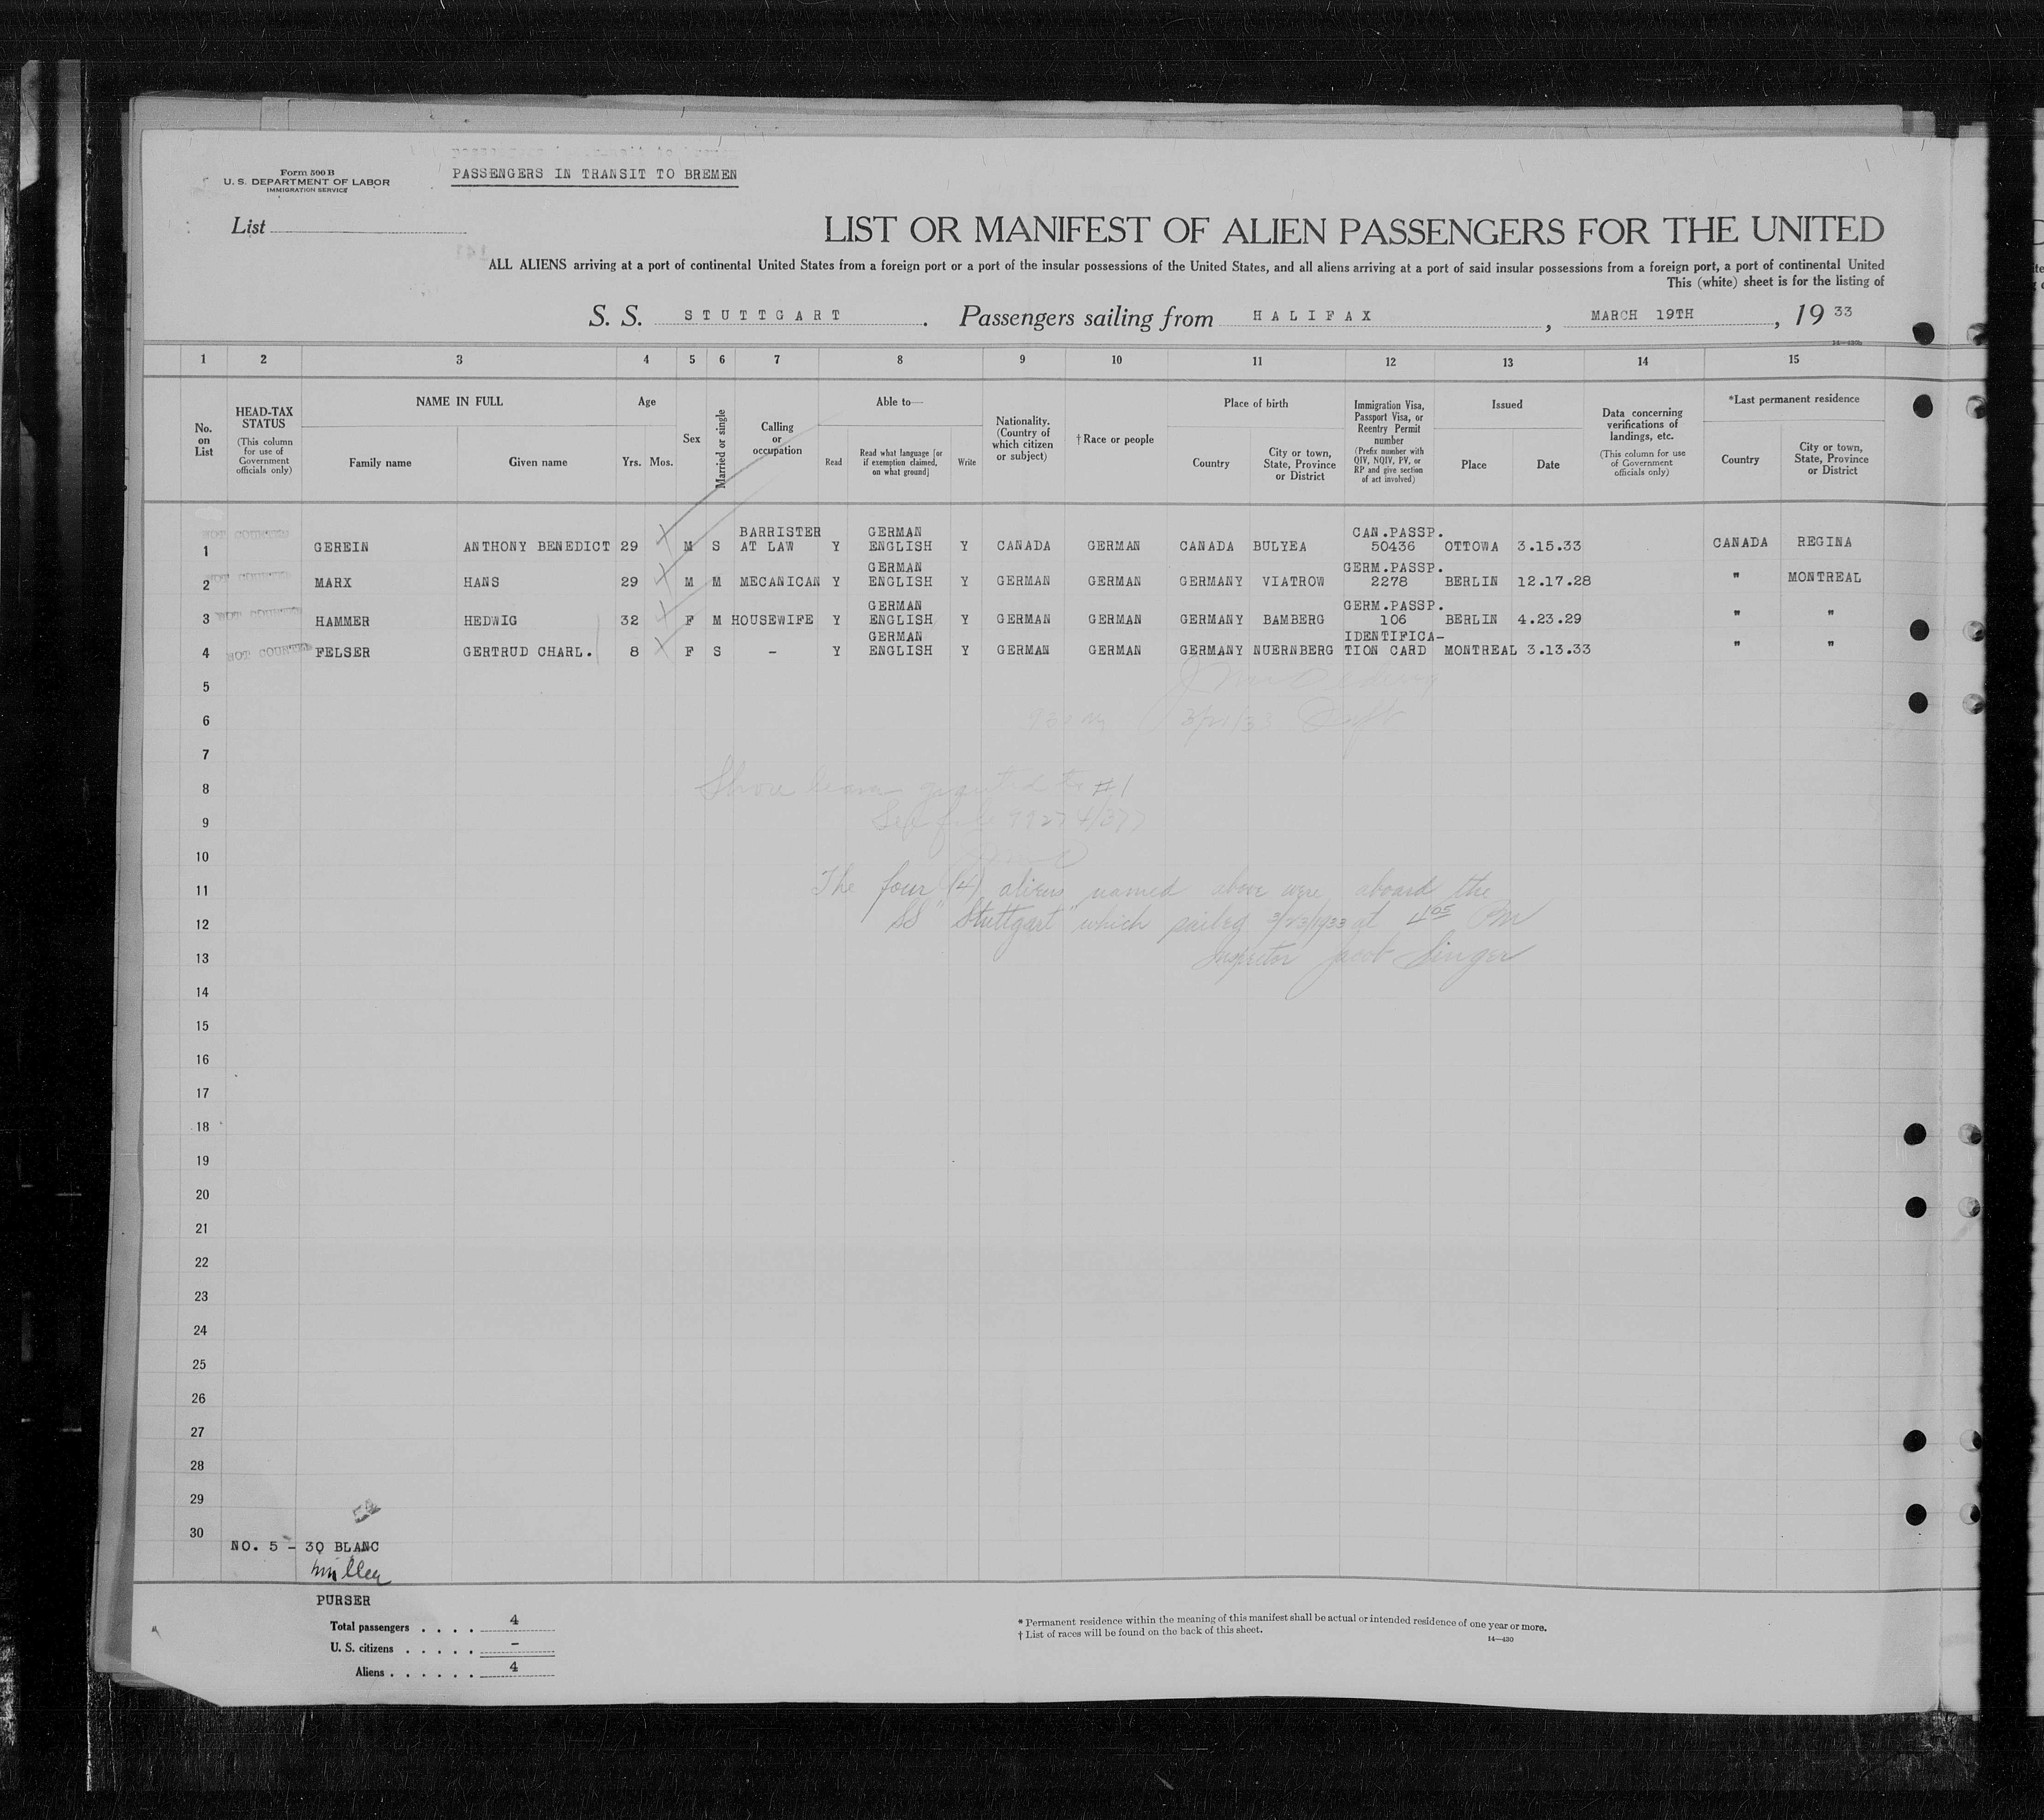 Form 500 B
U. S. DEPARTMENT OF LABOR
IMMIGRATION SERVICE
PASSENGERS IN TRANSIT TO BREMEN
List
LIST OR MANIFEST OF ALIEN PASSENGERS FOR THE UNITED
ALL ALIENS arriving at a port of continental United States from a foreign port or a port of the insular possessions of the United States, and all aliens arriving at a port of said insular possessions from a foreign port, a port of continental United
This (white) sheet is for the listing of
S. S. STUTTGART. Passengers sailing from HALIFAX, MARCH 19TH, 1933
1 2 3 4 5 6 7 8 9 10 11 12 13 14 15
No. on List
HEAD-TAX STATUS (This column for use of Government officials only)
NAME IN FULL
Family name
Given name
Age
Yrs. Mos.
Sex
Married or single
Calling or occupation
Able to—
Read
Read what language [or if exemption claimed, on what ground]
Write
Nationality. (Country of which citizen or subject)
†Race or people
Place of birth
Country
City or town, State, Province or District
Immigration Visa, Passport Visa, or Reentry Permit number (Prefix number with QIV, NQIV, PV, or RP and give section of act involved)
Issued
Place
Date
Data concerning verifications of landings, etc. (This column for use of Government officials only)
*Last permanent residence
Country
City or town, State, Province or District
1 NOT COUNTED GEREIN ANTHONY BENEDICT 29 M S BARRISTER AT LAW Y GERMAN ENGLISH Y CANADA GERMAN CANADA BULYEA CAN.PASSP. 50436 OTTOWA 3.15.33 CANADA REGINA
2 NOT COUNTED MARX HANS 29 M M MECANICAN Y GERMAN ENGLISH Y GERMAN GERMAN GERMANY VIATROW GERM.PASSP. 2278 BERLIN 12.17.28 " MONTREAL
3 NOT COUNTED HAMMER HEDWIG 32 F M HOUSEWIFE Y GERMAN ENGLISH Y GERMAN GERMAN GERMANY BAMBERG GERM.PASSP. 106 BERLIN 4.23.29 " "
4 NOT COUNTED FELSER GERTRUD CHARL. 8 F S - Y GERMAN ENGLISH Y GERMAN GERMAN GERMANY NUERNBERG IDENTIFICA-TION CARD MONTREAL 3.13.33 " "
5
6
7
8 Shore leave granted to #1
9
10
11 The four (4) aliens named above were aboard the
12 SS "Stuttgart" which sailed 3/23/1933 at 4 05 PM
13 Inspector Jacob Singer
14
15
16
17
18
19
20
21
22
23
24
25
26
27
28
29
30
NO. 5 - 30 BLANC
PURSER
Total passengers . . . . 4
U. S. citizens . . . . . -
Aliens . . . . . . 4
* Permanent residence within the meaning of this manifest shall be actual or intended residence of one year or more.
† List of races will be found on the back of this sheet.
14—430